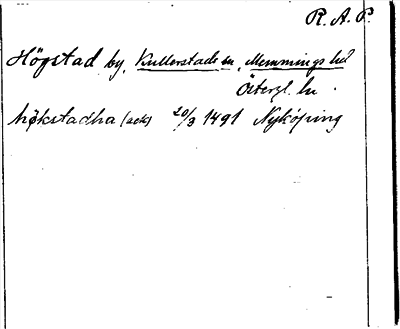 R. A. P.
Högstad by, Kullerstads sn, Memmings hd
Östergl. ln.
høkstadha (ack) 20/3 1491 Nyköping